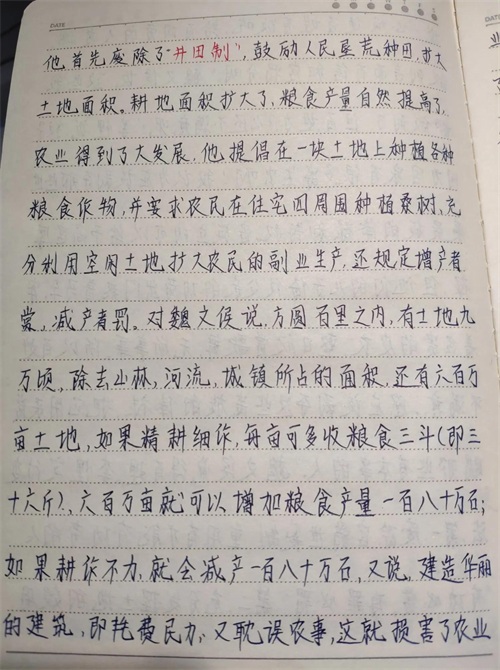 DATE
他首先废除了“井田制”,鼓励人民垦荒种田,扩大
土地面积。耕地面积扩大了,粮食产量自然提高了,
农业得到了大发展,他提倡在一块土地上种植各种
粮食作物,并要求农民在住宅四周围种植桑树,充
分利用空闲土地扩大农民的副业生产,还规定增产者
赏,减产者罚。对魏文侯说,方圆百里之内,有土地九
万顷,除去山林,河流,城镇所占的面积,还有六百万
亩土地,如果精耕细作,每亩可多收粮食三斗(即三
十六斤)、六百万亩就可以增加粮食产量一百八十万石;
如果耕作不力,就会减产一百八十万石,又说,建造华丽
的建筑,即耗费民力,又耽误农事,这就损害了农业